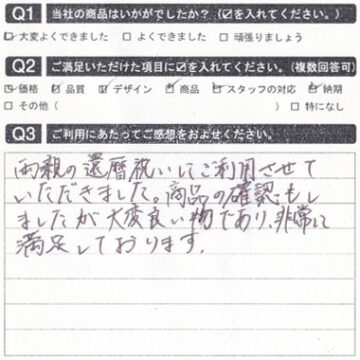 Q1 当社の商品はいかがでしたか？（☑を入れてください。）
☑大変よくできました □よくできました □頑張りましょう
Q2 ご満足いただけた項目に☑を入れてください。（複数回答可）
☑価格 ☑品質 ☑デザイン ☑商品 ☑スタッフの対応 ☑納期
□その他（ ） □特になし
Q3 ご利用にあたってご感想をおよせください。
両親の還暦祝いにご利用させて
いただきました。商品の確認もし
ましたが大変良い物であり、非常に
満足しております。